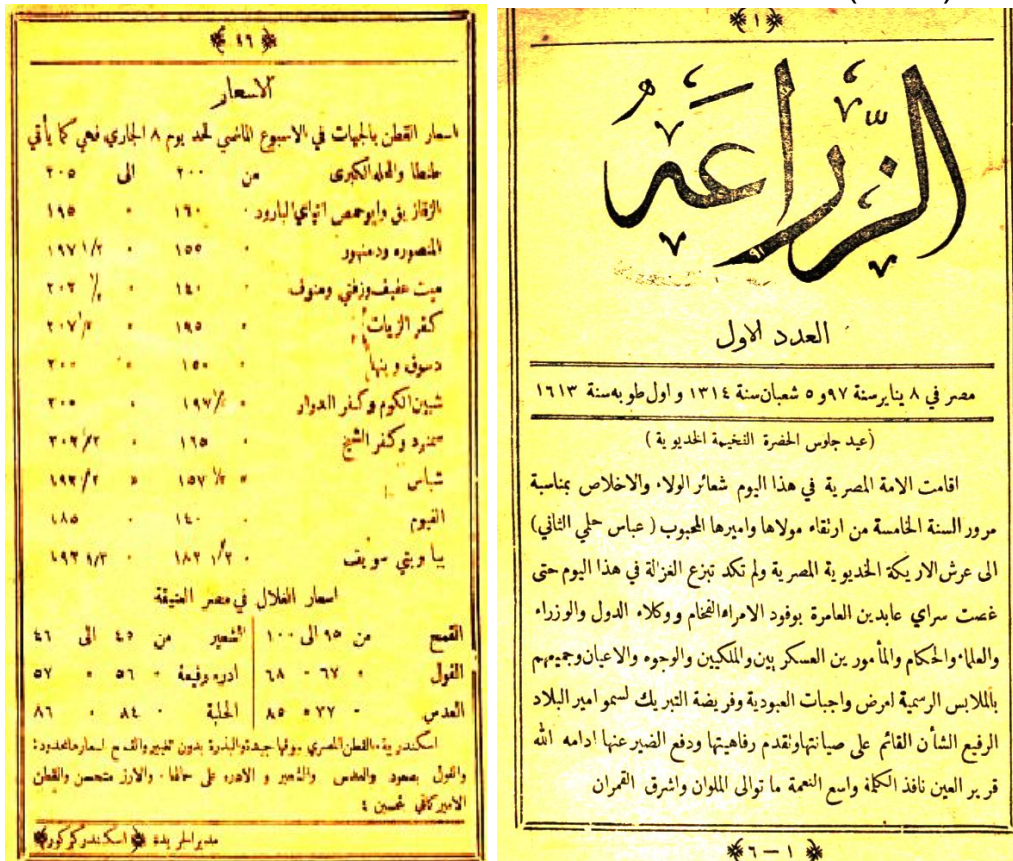 ﴿١﴾
الزراعة
العدد الاول
مصر في ٨ يناير سنة ٩٧ و ٥ شعبان سنة ١٣١٤ و اول طوبه سنة ١٦١٣
(عيد جلوس الحضرة الفخيمة الخديوية)
اقامت الامة المصرية في هذا اليوم شعائر الولاء والاخلاص بمناسبة
مرور السنة الخامسة من ارتقاء مولاها واميرها المحبوب (عباس حلمي الثاني)
الى عرش الاريكة الخديوية المصرية ولم تكد تبزع الغزالة في هذا اليوم حتى
غصت سراي عابدين العامرة بوفود الامراء الفخام ووكلاء الدول والوزراء
والعلماء والحكام والمأمورين العسكريين والملكيين والوجوه والاعيان وجميعهم
بالملابس الرسمية لعرض واجبات العبودية وفريضة التبريك لسمو امير البلاد
الرفيع الشأن القائم على صيانتها وتقدم رفاهيتها ودفع الضير عنها ادامه الله
قرير العين نافذ الكلمة واسع النعمة ما توالى الملوان واشرق القمران
﴿١ — ٦﴾
﴿١٦﴾
الاسعار
اسعار القطن بالجهات في الاسبوع الماضي لحد يوم ٨ الجاري فهي كما يأتي
طنطا والمحله الكبرى من ٢٠٠ الى ٢٠٥
الزقازيق وابو حمص اتياي البارود " ١٦٠ " ١٩٥
المنصوره ودمنهور " ١٥٥ " ١٩٧ ١/٢
ميت عفيف وزفتي ومنوف " ١٤٠ " ٢٠٢ ١/٢
كفر الزيات " ١٩٥ " ٢٠٧ ١/٢
دسوق وبنها ١٥٠ " ٢٠٠
شبين الكوم وكفر الدوار " ١٩٧ ١/٢ " ٢٠٥
سمنود وكفر الشيخ " ١٦٥ " ٢٠٢ ١/٢
شباس " ١٥٧ ١/٢ " ١٩٢ ١/٢
الفيوم " ١٤٠ " ١٨٥
ببا وبني سويف " ١٨٢ ١/٢ " ١٩٢ ١/٢
اسعار الغلال في مصر العتيقة
القمح من ٩٥ الى ١٠٠ الشعير من ٤٥ الى ٤٦
الفول " ٦٧ " ٦٨ ادره رفيعة " ٥٦ " ٥٧
العدس " ٧٧ " ٨٥ الحلبة " ٨٤ " ٨٦
اسكندرية. القطن المصري سوقها جيدة والبذرة بدون تغيير والقمح اسعارها محدودة
والفول بصعود والعدس والشعير و الادره على حالها. والارز متحسن والقطن
الاميركاني تحسين
مدير الجريدة ﴿اسكندر كركور﴾